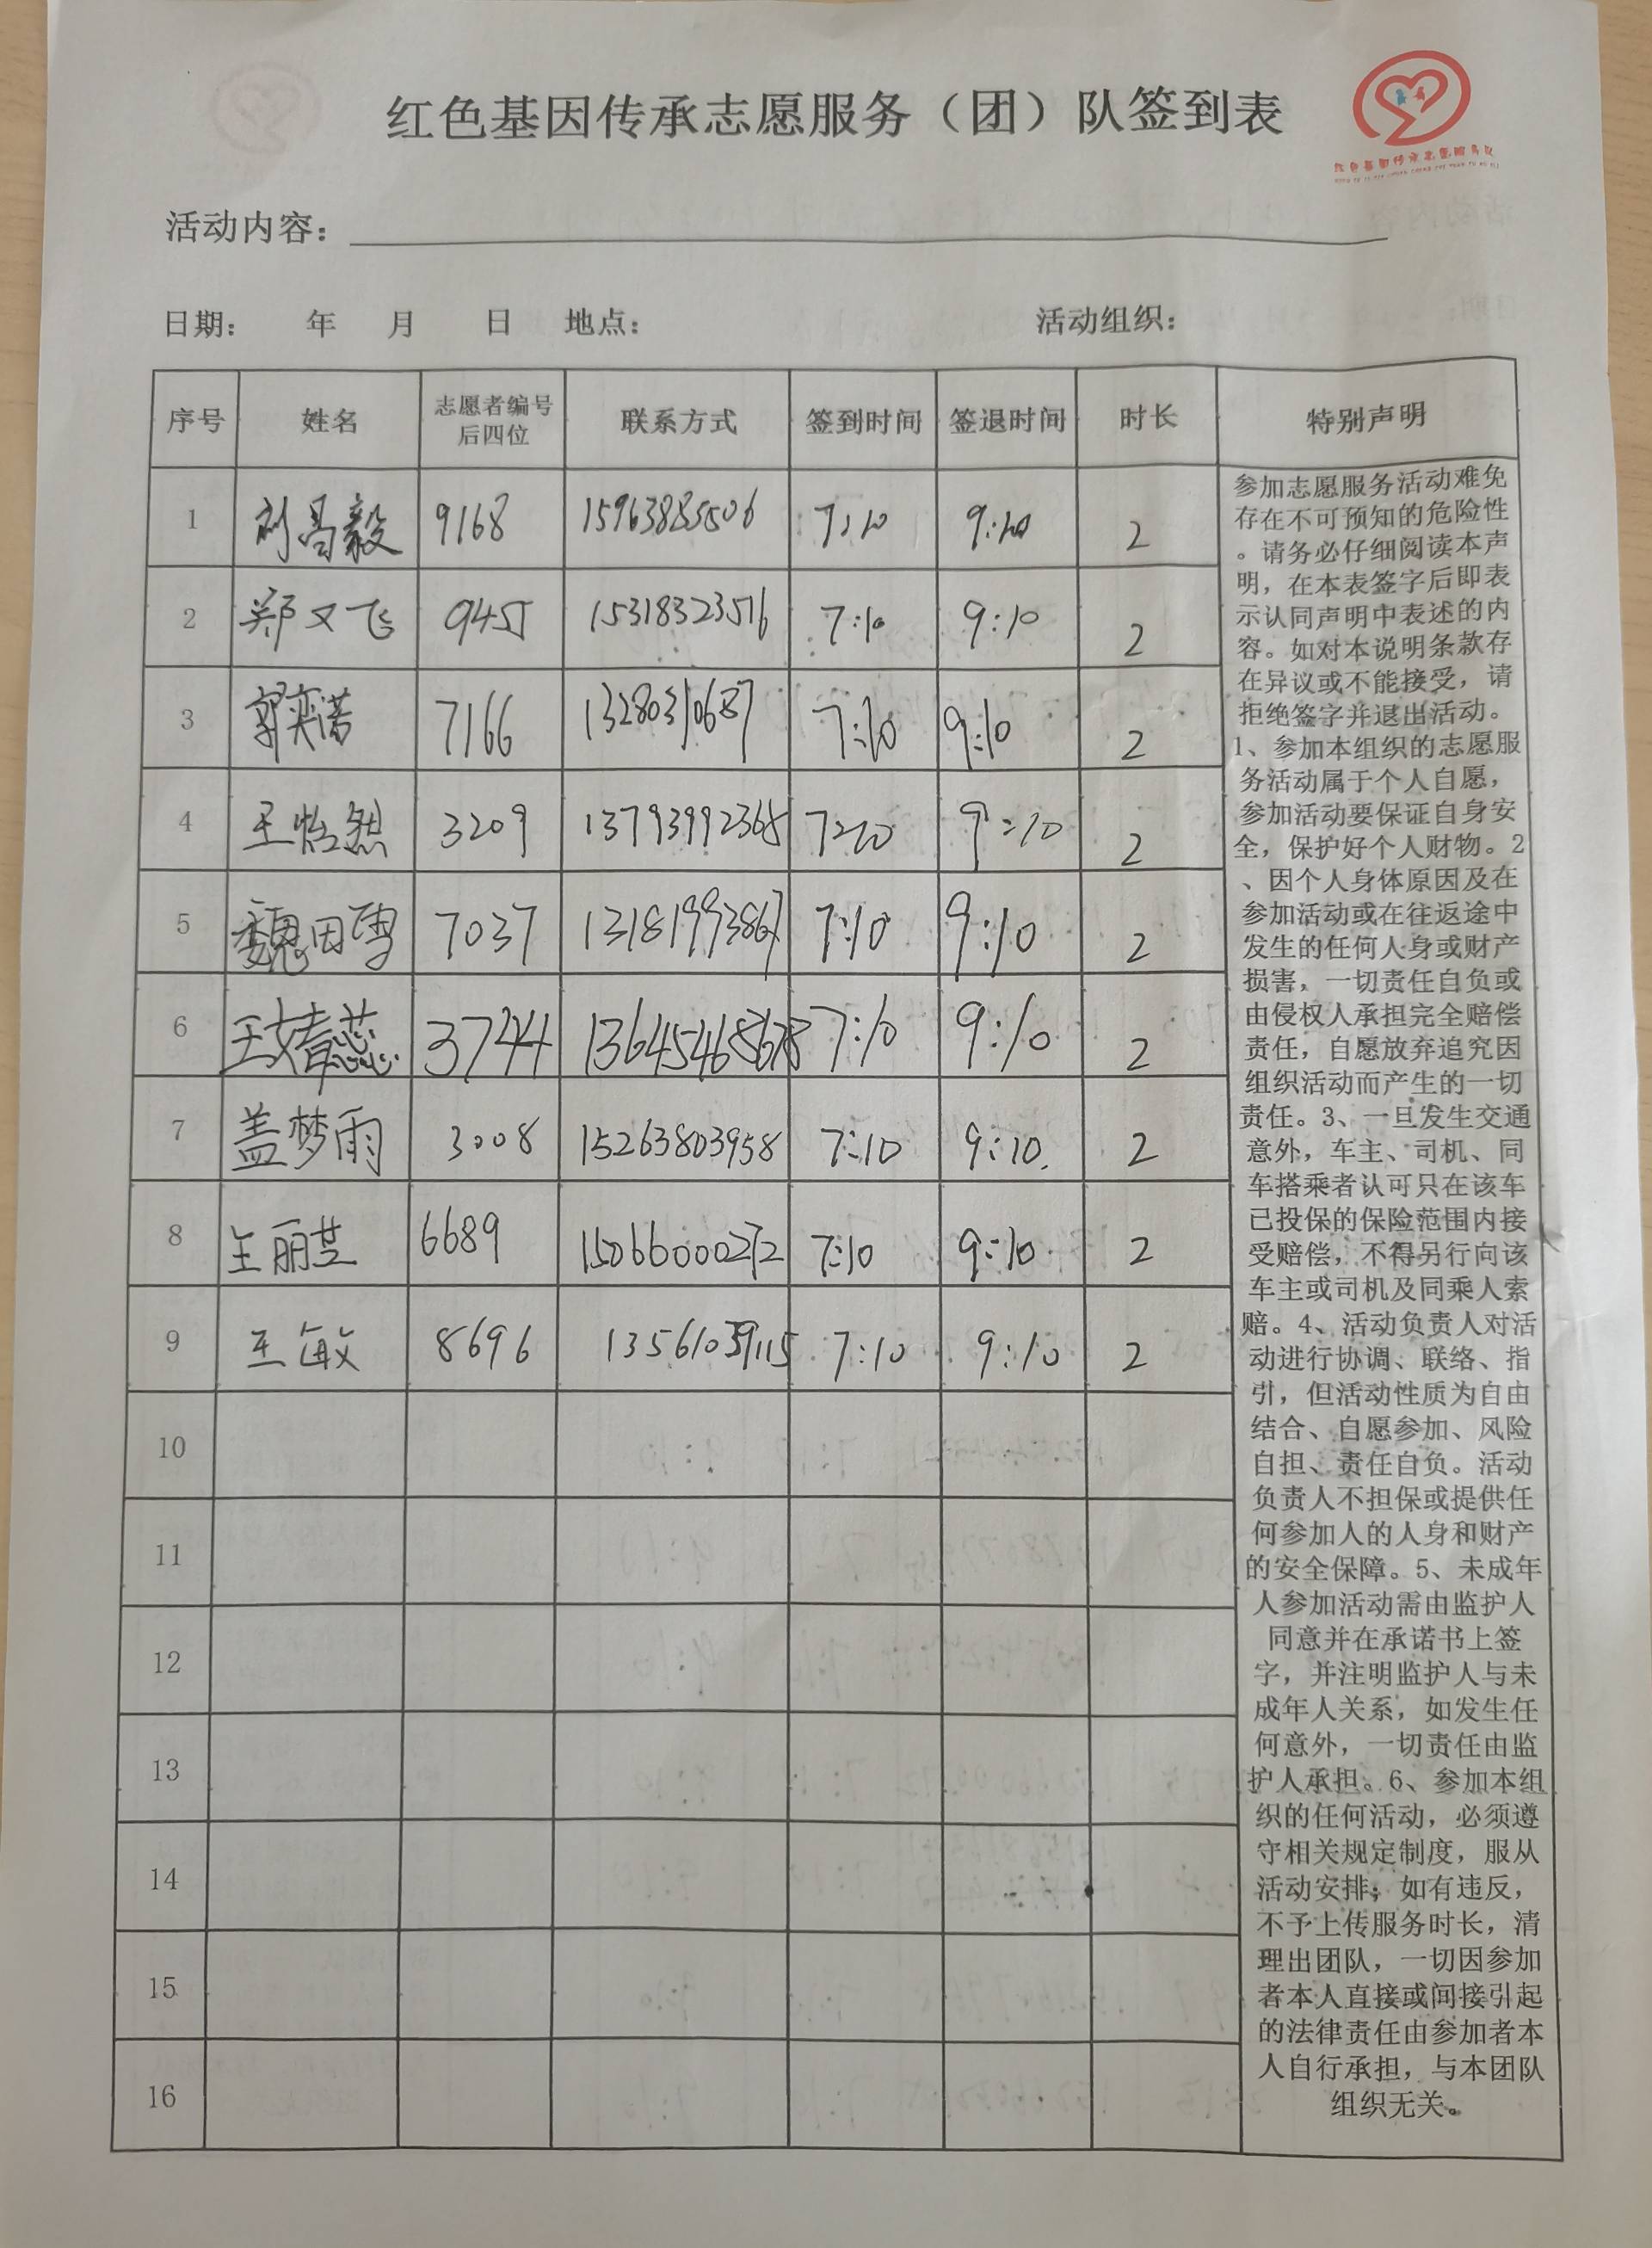 红色基因传承志愿服务（团）队签到表
红色基因传承志愿服务队
活动内容：
日期： 年 月 日 地点： 活动组织：
序号 姓名 志愿者编号后四位 联系方式 签到时间 签退时间 时长 特别声明
1 刘昌毅 9168 7:10 9:10 2
2 郑又飞 945 15318323516 7:10 9:10 2
3 郭奕诺 7166 13280310687 7:10 9:10 2
4 王怡然 3209 13793992365 7:10 9:10 2
5 魏田雪 7037 13181993867 7:10 9:10 2
6 王婧蕊 3744 13645468678 7:10 9:10 2
7 盖梦雨 3008 15263803958 7:10 9:10 2
8 王丽芝 6689 15066000272 7:10 9:10 2
9 王敏 8696 13561039115 7:10 9:10 2
10
11
12
13
14
15
16
参加志愿服务活动难免
存在不可预知的危险性
。请务必仔细阅读本声
明，在本表签字后即表
示认同声明中表述的内
容。如对本说明条款存
在异议或不能接受，请
拒绝签字并退出活动。
1、参加本组织的志愿服
务活动属于个人自愿，
参加活动要保证自身安
全，保护好个人财物。2
、因个人身体原因及在
参加活动或在往返途中
发生的任何人身或财产
损害，一切责任自负或
由侵权人承担完全赔偿
责任，自愿放弃追究因
组织活动而产生的一切
责任。3、一旦发生交通
意外，车主、司机、同
车搭乘者认可只在该车
已投保的保险范围内接
受赔偿，不得另行向该
车主或司机及同乘人索
赔。4、活动负责人对活
动进行协调、联络、指
引，但活动性质为自由
结合、自愿参加、风险
自担、责任自负。活动
负责人不担保或提供任
何参加人的人身和财产
的安全保障。5、未成年
人参加活动需由监护人
同意并在承诺书上签
字，并注明监护人与未
成年人关系，如发生任
何意外，一切责任由监
护人承担。6、参加本组
织的任何活动，必须遵
守相关规定制度，服从
活动安排；如有违反，
不予上传服务时长，清
理出团队，一切因参加
者本人直接或间接引起
的法律责任由参加者本
人自行承担，与本团队
组织无关。